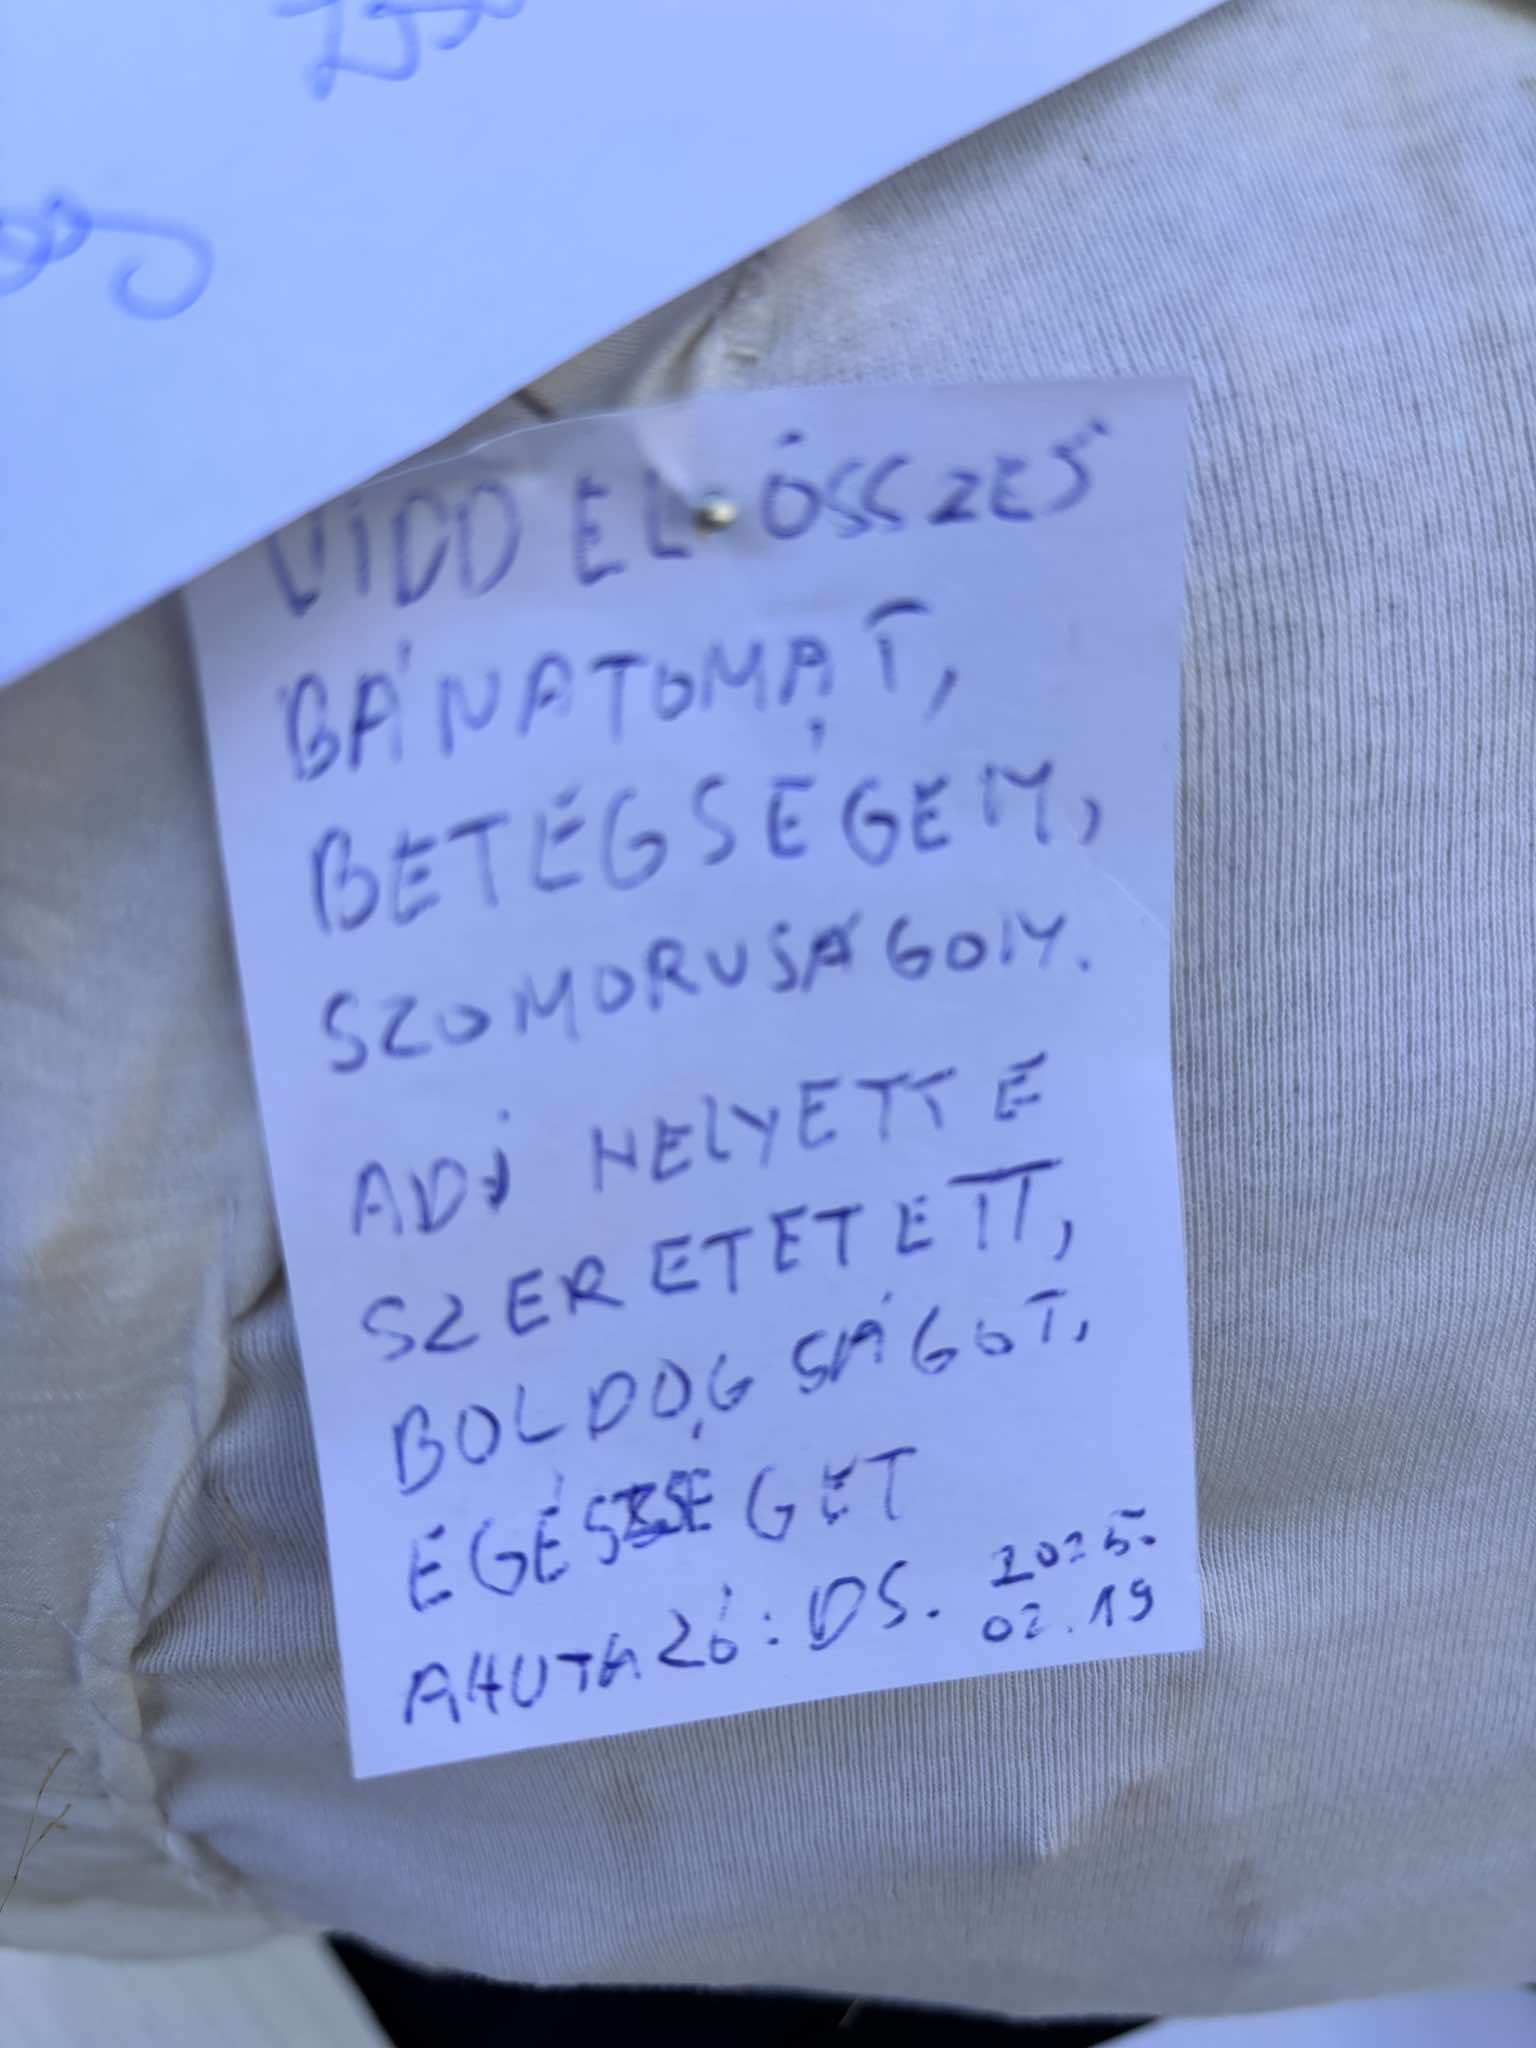 VIDD EL ÖSSZES
BÁNATOMAT,
BETEGSÉGEM,
SZOMORUSÁGOM.
ADJ HELYETTE
SZERETETETT,
BOLDOGSÁGOT,
EGÉSZSÉGET
AHUTAZÓ: DS. 2025.
02.19